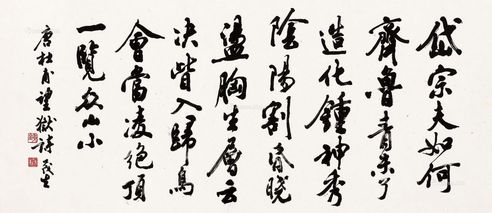 岱宗夫如何
齊魯青未了
造化鍾神秀
陰陽割昏曉
盪胸生層云
決眥入歸鳥
會當凌絕頂
一覽众山小
唐杜甫望嶽詩